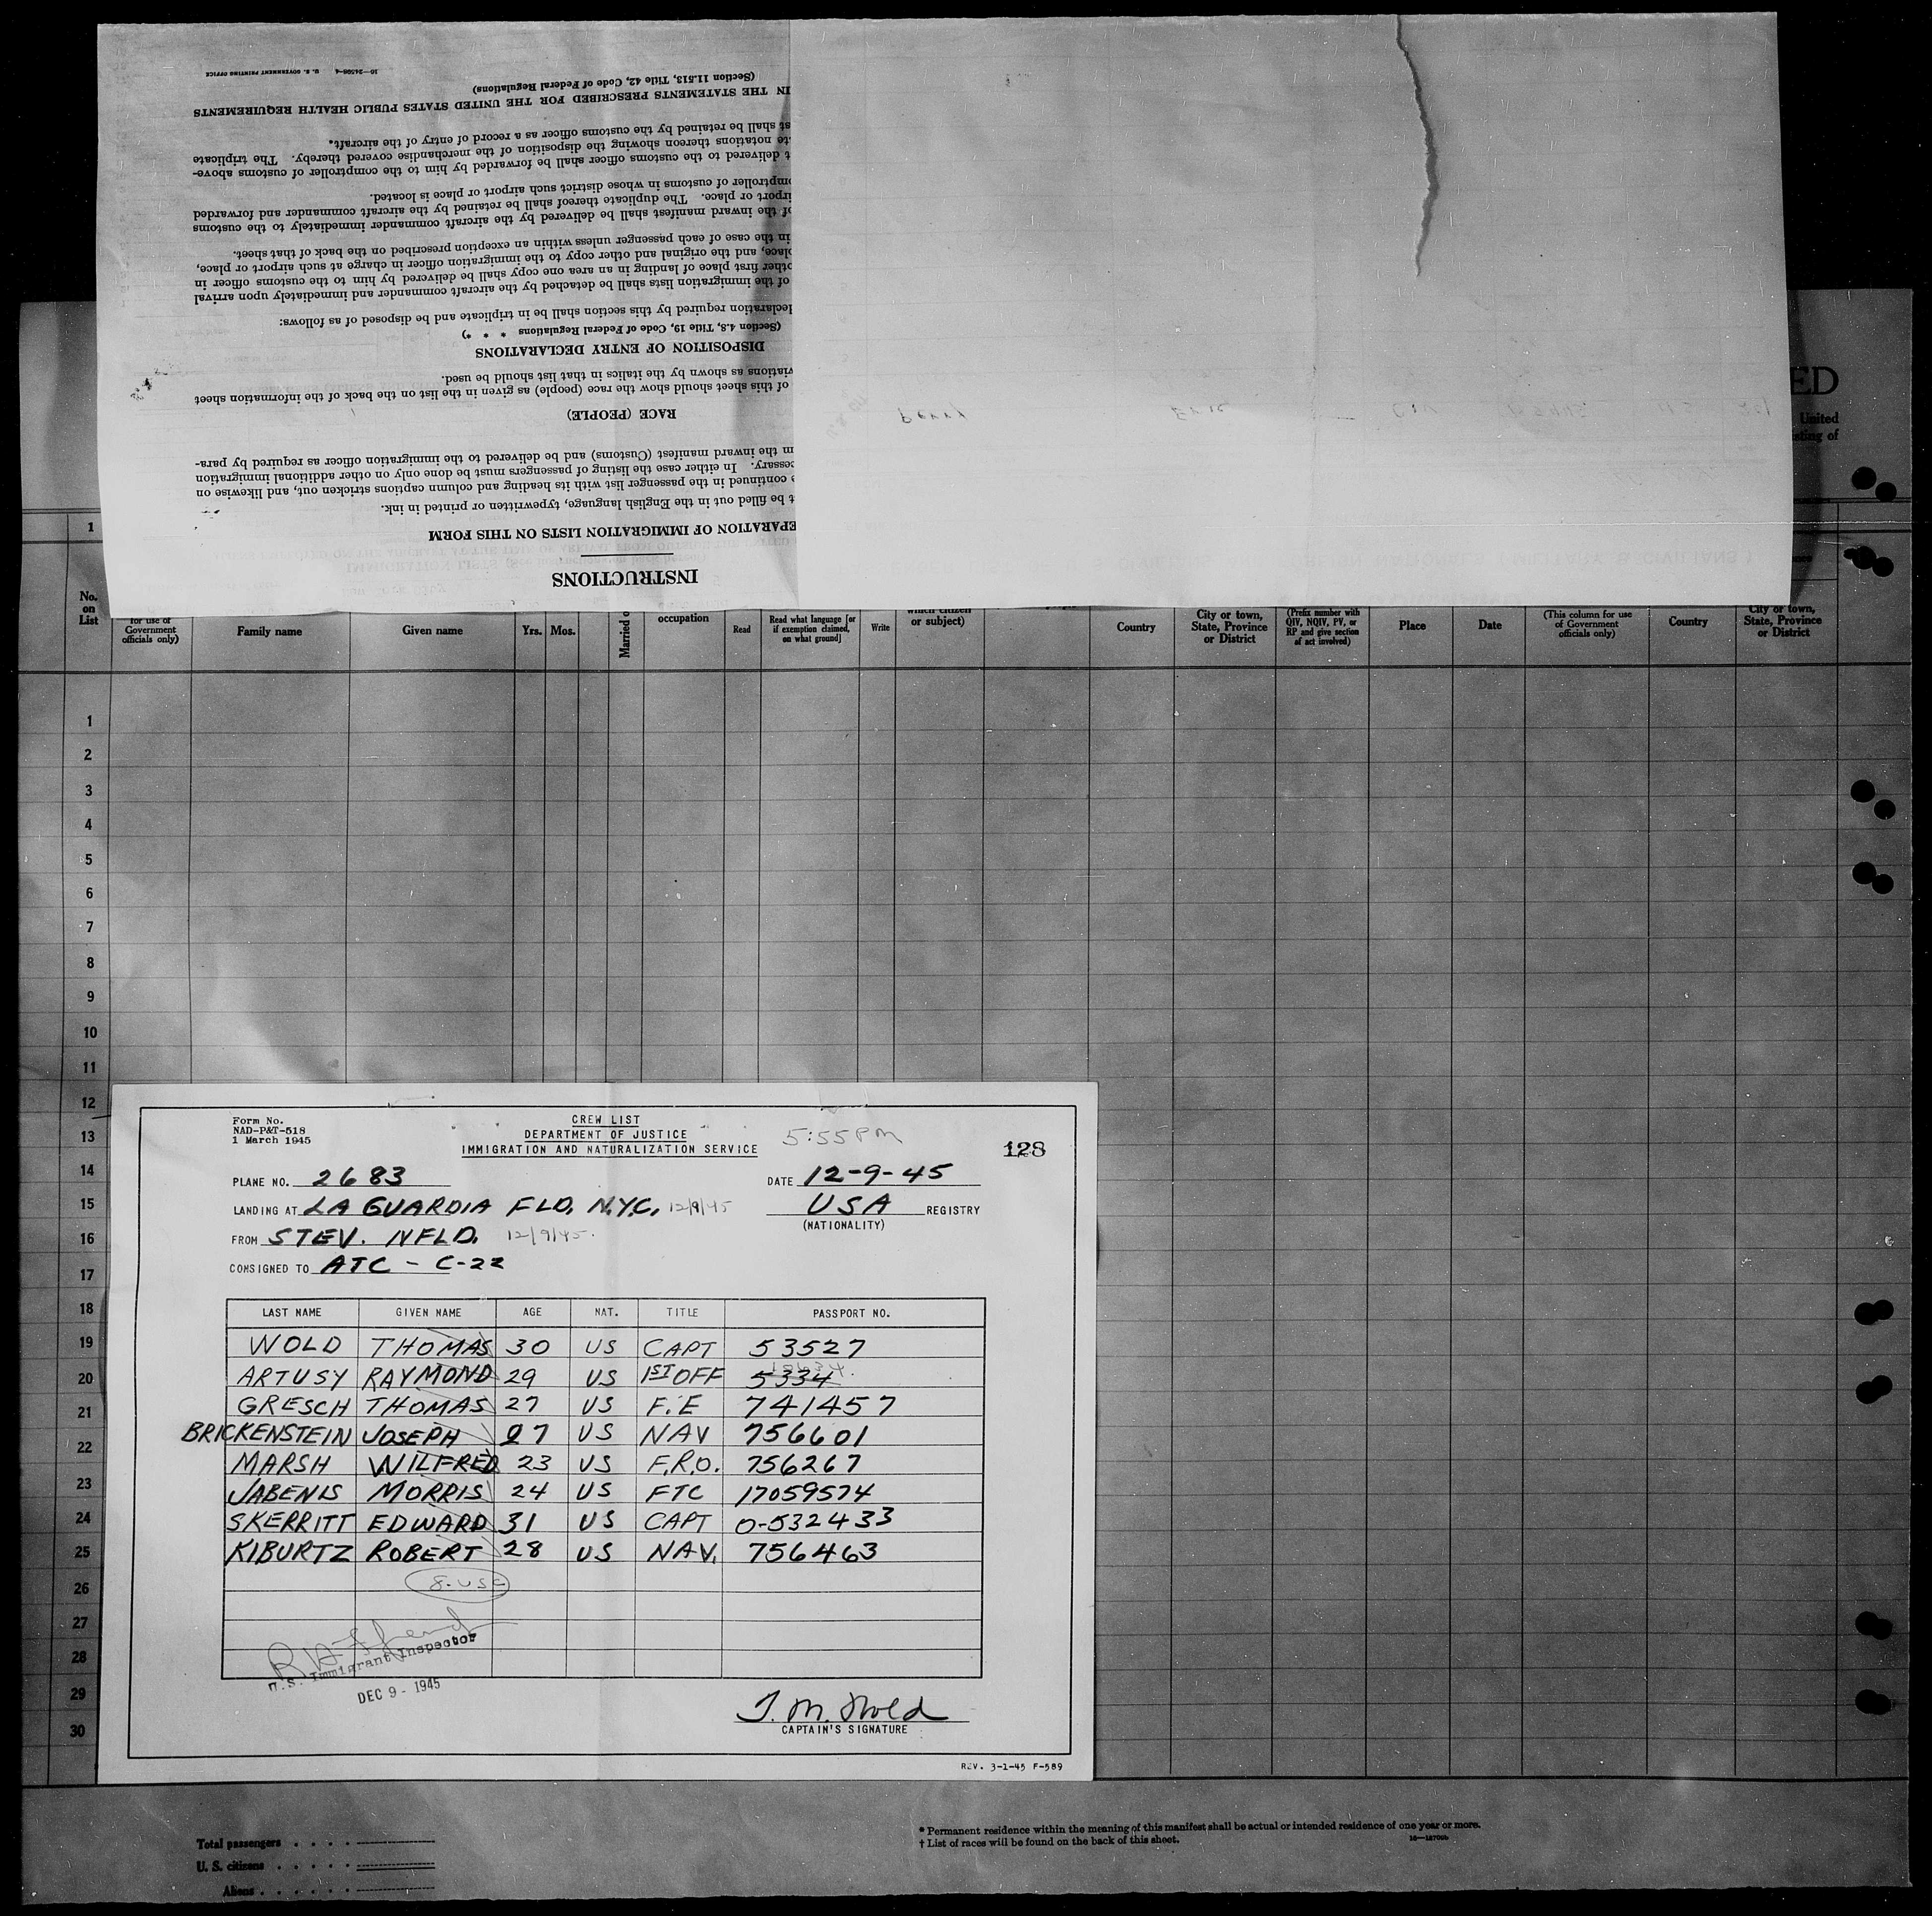 INSTRUCTIONS
EPARATION OF IMMIGRATION LISTS ON THIS FORM
t be filled out in the English language, typewritten or printed in ink.
e continued in the passenger list with its heading and column captions stricken out, and likewise on
cessary. In either case the listing of passengers must be done only on other additional immigration
m the inward manifest (Customs) and be delivered to the immigration officer as required by para-
RACE (PEOPLE)
of this sheet should show the race (people) as given in the list on the back of the information sheet
viations as shown by the italics in that list should be used.
DISPOSITION OF ENTRY DECLARATIONS
(Section 4.8, Title 19, Code of Federal Regulations * * *)
declaration required by this section shall be in triplicate and be disposed of as follows:
of the immigration lists shall be detached by the aircraft commander and immediately upon arrival
other first place of landing in an area one copy shall be delivered by him to the customs officer in
place, and the original and other copy to the immigration officer in charge at such airport or place,
in the case of each passenger unless within an exception prescribed on the back of that sheet.
of the inward manifest shall be delivered by the aircraft commander immediately to the customs
irport or place. The duplicate thereof shall be retained by the aircraft commander and forwarded
omptroller of customs in whose district such airport or place is located.
t delivered to the customs officer shall be forwarded by him to the comptroller of customs above-
te notations thereon showing the disposition of the merchandise covered thereby. The triplicate
st shall be retained by the customs officer as a record of entry of the aircraft.
IN THE STATEMENTS PRESCRIBED FOR THE UNITED STATES PUBLIC HEALTH REQUIREMENTS
(Section 11.513, Title 42, Code of Federal Regulations)
16—24598-4 U. S. GOVERNMENT PRINTING OFFICE
ED
United
sting of
1
No. on List
for use of Government officials only)
Family name
Given name
Yrs. Mos.
Married o
occupation
Read
Read what language [or if exemption claimed, on what ground]
Write
which citizen or subject)
Country
City or town, State, Province or District
(Prefix number with QIV, NQIV, PV, or RP and give section of act involved)
Place
Date
(This column for use of Government officials only)
Country
City or town, State, Province or District
1
2
3
4
5
6
7
8
9
10
11
12
13
14
15
16
17
18
19
20
21
22
23
24
25
26
27
28
29
30
Form No.
NAD-P&T-518
1 March 1945
CREW LIST
DEPARTMENT OF JUSTICE
IMMIGRATION AND NATURALIZATION SERVICE
5:55PM
128
PLANE NO. 2683
DATE 12-9-45
LANDING AT LA GUARDIA FLD, N.Y.C. 12/9/45
USA REGISTRY
(NATIONALITY)
FROM STEV. NFLD. 12/9/45.
CONSIGNED TO ATC - C-22
LAST NAME GIVEN NAME AGE NAT. TITLE PASSPORT NO.
WOLD THOMAS 30 US CAPT 53527
ARTUSY RAYMOND 29 US 1ST OFF 5334
GRESCH THOMAS 27 US F.E 741457
BRICKENSTEIN JOSEPH 27 US NAV 756601
MARSH WILFRED 23 US F.R.O. 756267
JABENIS MORRIS 24 US FTC 17059574
SKERRITT EDWARD 31 US CAPT O-532433
KIBURTZ ROBERT 28 US NAV. 756463
8-USC
U.S. Immigrant Inspector
DEC 9 - 1945
T. M. Wold
CAPTAIN'S SIGNATURE
REV. 3-1-45 F-589
Total passengers
U. S. citizens
Aliens
* Permanent residence within the meaning of this manifest shall be actual or intended residence of one year or more.
† List of races will be found on the back of this sheet.